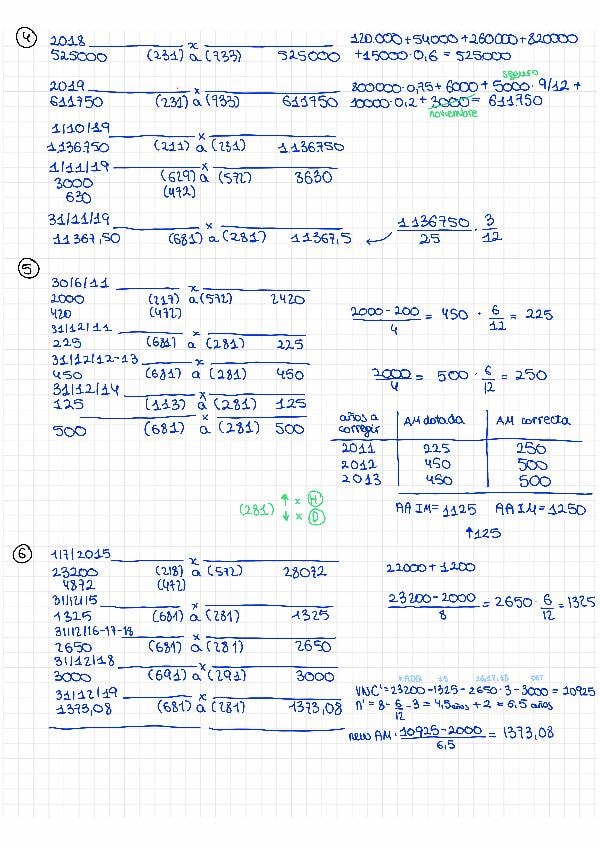 ④ 2018 x 120.000+54000+260000+820000
525000 (231) a (733) 525000 +15000·0,6 = 525000
2019 x seguro
800000·0,75+6000+5000·9/12+
611750 (231) a (733) 611750 10000·0,2+3000= 611750
noviembre
1/10/19 x
1.136750 (211) a (231) 1.136750
1/11/19 x
3000 (629) a (572) 3630
630 (472)
31/11/19 x
11367,50 (681) a (281) 11367,5 ← 1136750/25 · 3/12
⑤
30/6/11 x
2000 (217) a (572) 2420
420 (472)
2000-200/4 = 450 · 6/12 = 225
31/12/11 x
225 (681) a (281) 225
31/12/12-13 x
450 (681) a (281) 450
2000/4 = 500 · 6/12 = 250
31/12/14 x
125 (113) a (281) 125
500 (681) a (281) 500
años a corregir AM dotada AM correcta
2011 225 250
2012 450 500
2013 450 500
AA IM = 1125 AA IM = 1250
↑125
(281) ↑ x H
↓ x D
⑥ 1/7/2015 x
23200 (218) a (572) 28072
4872 (472)
22000 + 1200
31/12/15 x
1325 (681) a (281) 1325
23200-2000/8 = 2650 · 6/12 = 1325
31/12/16-17-18 x
2650 (681) a (281) 2650
31/12/18 x
3000 (691) a (291) 3000
15 16,17,18 det
VNC' = 23200-1325-2650·3-3000 = 10925
31/12/19 x
n' = 8- 6/12 -3 = 4,5 años + 2 = 6,5 años
1373,08 (681) a (281) 1373,08
new AM · 10925-2000/6,5 = 1373,08